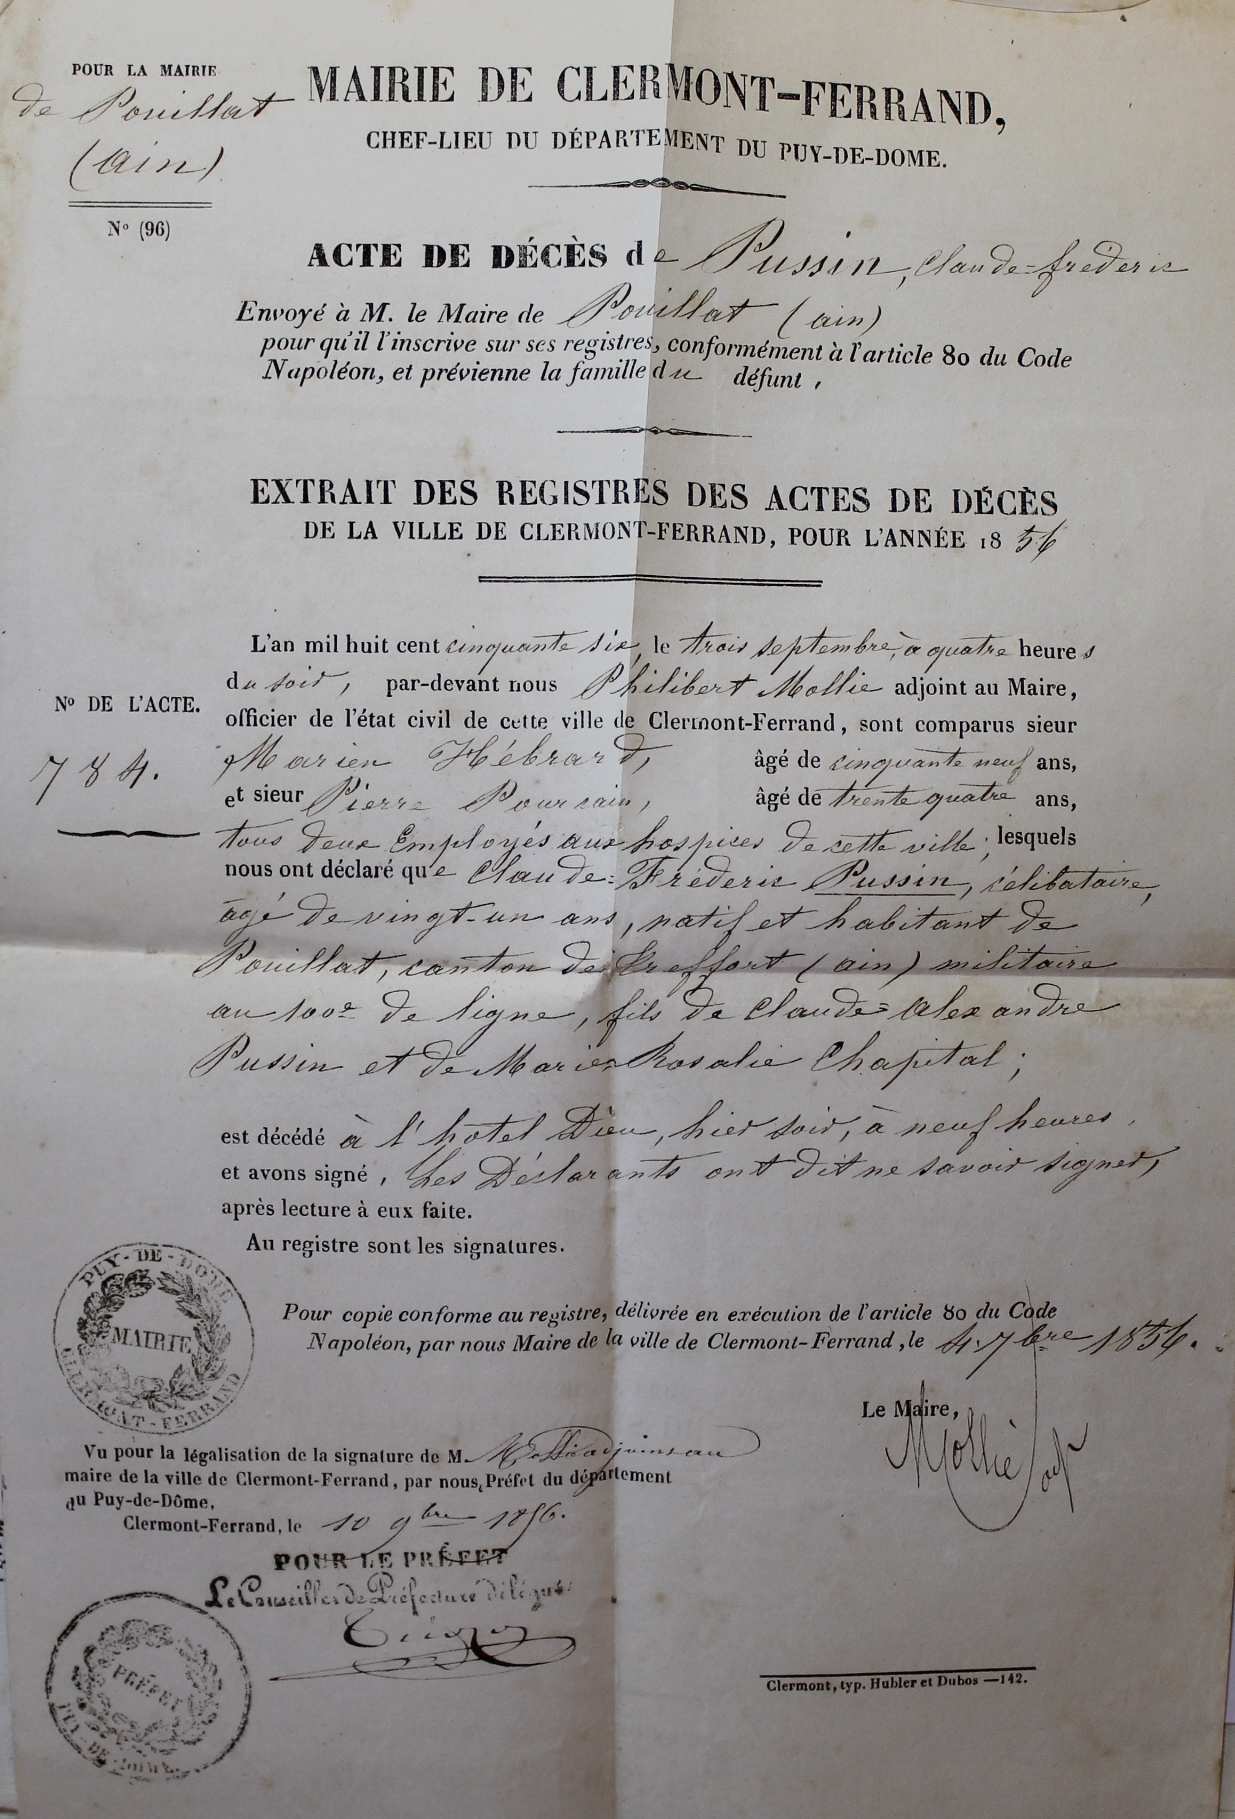 POUR LA MAIRIE
de Pouillat
(ain)
N° (96)
MAIRIE DE CLERMONT-FERRAND,
CHEF-LIEU DU DÉPARTEMENT DU PUY-DE-DOME.
ACTE DE DÉCÈS de Pussin, Claude=frederic
Envoyé à M. le Maire de Pouillat (ain)
pour qu'il l'inscrive sur ses registres, conformément à l'article 80 du Code
Napoléon, et prévienne la famille du défunt,
EXTRAIT DES REGISTRES DES ACTES DE DÉCÈS
DE LA VILLE DE CLERMONT-FERRAND, POUR L'ANNÉE 1856
L'an mil huit cent cinquante six, le trois septembre, à quatre heures
du soir, par-devant nous Philibert Mollie adjoint au Maire,
N° DE L'ACTE.
officier de l'état civil de cette ville de Clermont-Ferrand, sont comparus sieur
784.
Marien Hébrard, âgé de cinquante neuf ans,
et sieur Pierre Pourcain, âgé de trente quatre ans,
tous deux Employés aux hospices de cette ville; lesquels
nous ont déclaré que Claude=Fréderic Pussin, célibataire,
âgé de vingt-un ans, natif et habitant de
Pouillat, canton de Treffort (ain) militaire
au 100e de ligne, fils de Claude=alexandre
Pussin et de Marie=Rosalie Chapital;
est décédé à l'hôtel Dieu, hier soir, à neuf heures,
et avons signé, Les Déclarants ont dit ne savoir signer,
après lecture à eux faite.
Au registre sont les signatures.
PUY-DE-DOME
MAIRIE
CLERMONT-FERRAND
Pour copie conforme au registre, délivrée en exécution de l'article 80 du Code
Napoléon, par nous Maire de la ville de Clermont-Ferrand, le 4 7bre 1856.
Le Maire,
Mollie adj
Vu pour la légalisation de la signature de M. Mollie adjoint au
maire de la ville de Clermont-Ferrand, par nous, Préfet du département
du Puy-de-Dôme,
Clermont-Ferrand, le 10 9bre 1856.
POUR LE PRÉFET
Le Conseiller de Préfecture délégué
PRÉFET
PUY-DE-DOME
Clermont, typ. Hubler et Dubos —142.